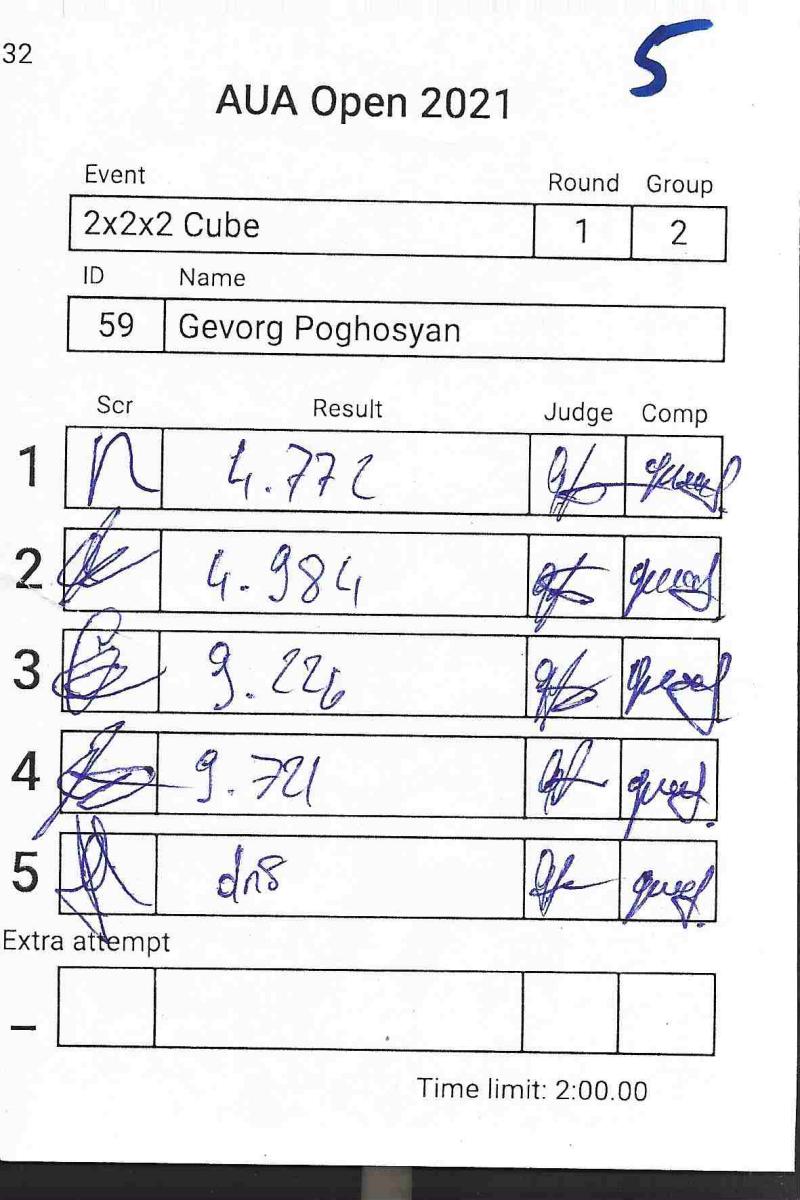 32
5
AUA Open 2021
Event Round Group
2x2x2 Cube 1 2
ID Name
59 Gevorg Poghosyan
Scr Result Judge Comp
1 4.772
2 4.984
3 9.226
4 9.721
5 dns
Extra attempt
–
Time limit: 2:00.00